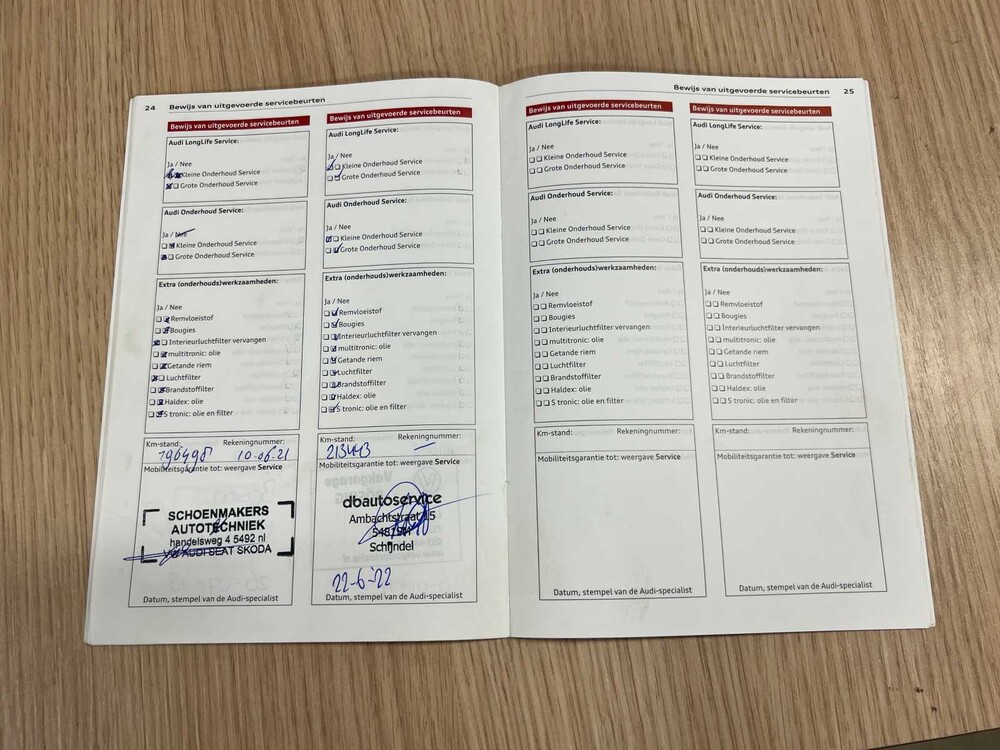 24 Bewijs van uitgevoerde servicebeurten
Bewijs van uitgevoerde servicebeurten
Audi LongLife Service:
Ja / Nee
Kleine Onderhoud Service
Grote Onderhoud Service
Audi Onderhoud Service:
Ja / Nee
Kleine Onderhoud Service
Grote Onderhoud Service
Extra (onderhouds)werkzaamheden:
Ja / Nee
Remvloeistof
Bougies
Interieurluchtfilter vervangen
multitronic: olie
Getande riem
Luchtfilter
Brandstoffilter
Haldex: olie
S tronic: olie en filter
Km-stand: Rekeningnummer:
196498 10-06-21
Mobiliteitsgarantie tot: weergave Service
SCHOENMAKERS
AUTOTECHNIEK
handelsweg 4 5492 nl
VW AUDI SEAT SKODA
Datum, stempel van de Audi-specialist
Bewijs van uitgevoerde servicebeurten
Audi LongLife Service:
Ja / Nee
Kleine Onderhoud Service
Grote Onderhoud Service
Audi Onderhoud Service:
Ja / Nee
Kleine Onderhoud Service
Grote Onderhoud Service
Extra (onderhouds)werkzaamheden:
Ja / Nee
Remvloeistof
Bougies
Interieurluchtfilter vervangen
multitronic: olie
Getande riem
Luchtfilter
Brandstoffilter
Haldex: olie
S tronic: olie en filter
Km-stand: Rekeningnummer:
213443
Mobiliteitsgarantie tot: weergave Service
dbautoservice
Ambachtstraat 15
Schijndel
22-6-'22
Datum, stempel van de Audi-specialist
Bewijs van uitgevoerde servicebeurten 25
Bewijs van uitgevoerde servicebeurten
Audi LongLife Service:
Ja / Nee
Kleine Onderhoud Service
Grote Onderhoud Service
Audi Onderhoud Service:
Ja / Nee
Kleine Onderhoud Service
Grote Onderhoud Service
Extra (onderhouds)werkzaamheden:
Ja / Nee
Remvloeistof
Bougies
Interieurluchtfilter vervangen
multitronic: olie
Getande riem
Luchtfilter
Brandstoffilter
Haldex: olie
S tronic: olie en filter
Km-stand: Rekeningnummer:
Mobiliteitsgarantie tot: weergave Service
Datum, stempel van de Audi-specialist
Bewijs van uitgevoerde servicebeurten
Audi LongLife Service:
Ja / Nee
Kleine Onderhoud Service
Grote Onderhoud Service
Audi Onderhoud Service:
Ja / Nee
Kleine Onderhoud Service
Grote Onderhoud Service
Extra (onderhouds)werkzaamheden:
Ja / Nee
Remvloeistof
Bougies
Interieurluchtfilter vervangen
multitronic: olie
Getande riem
Luchtfilter
Brandstoffilter
Haldex: olie
S tronic: olie en filter
Km-stand: Rekeningnummer:
Mobiliteitsgarantie tot: weergave Service
Datum, stempel van de Audi-specialist